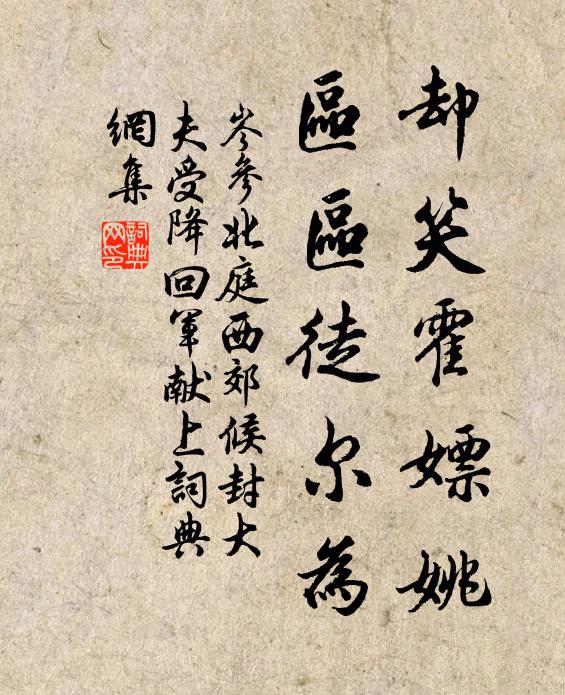 却笑霍嫖姚
區區徒尔為
岑參北庭西郊候封大
夫受降回軍献上詞典
網集
詞典
网印